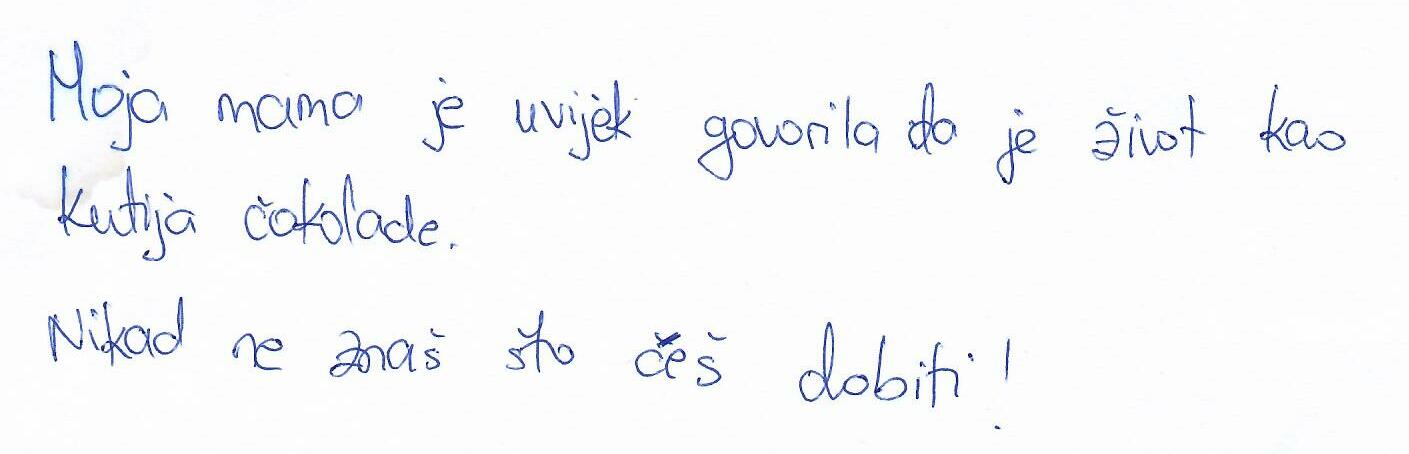 Moja mama je uvijek govorila da je život kao
kutija čokolade.
Nikad ne znaš što češ dobiti!